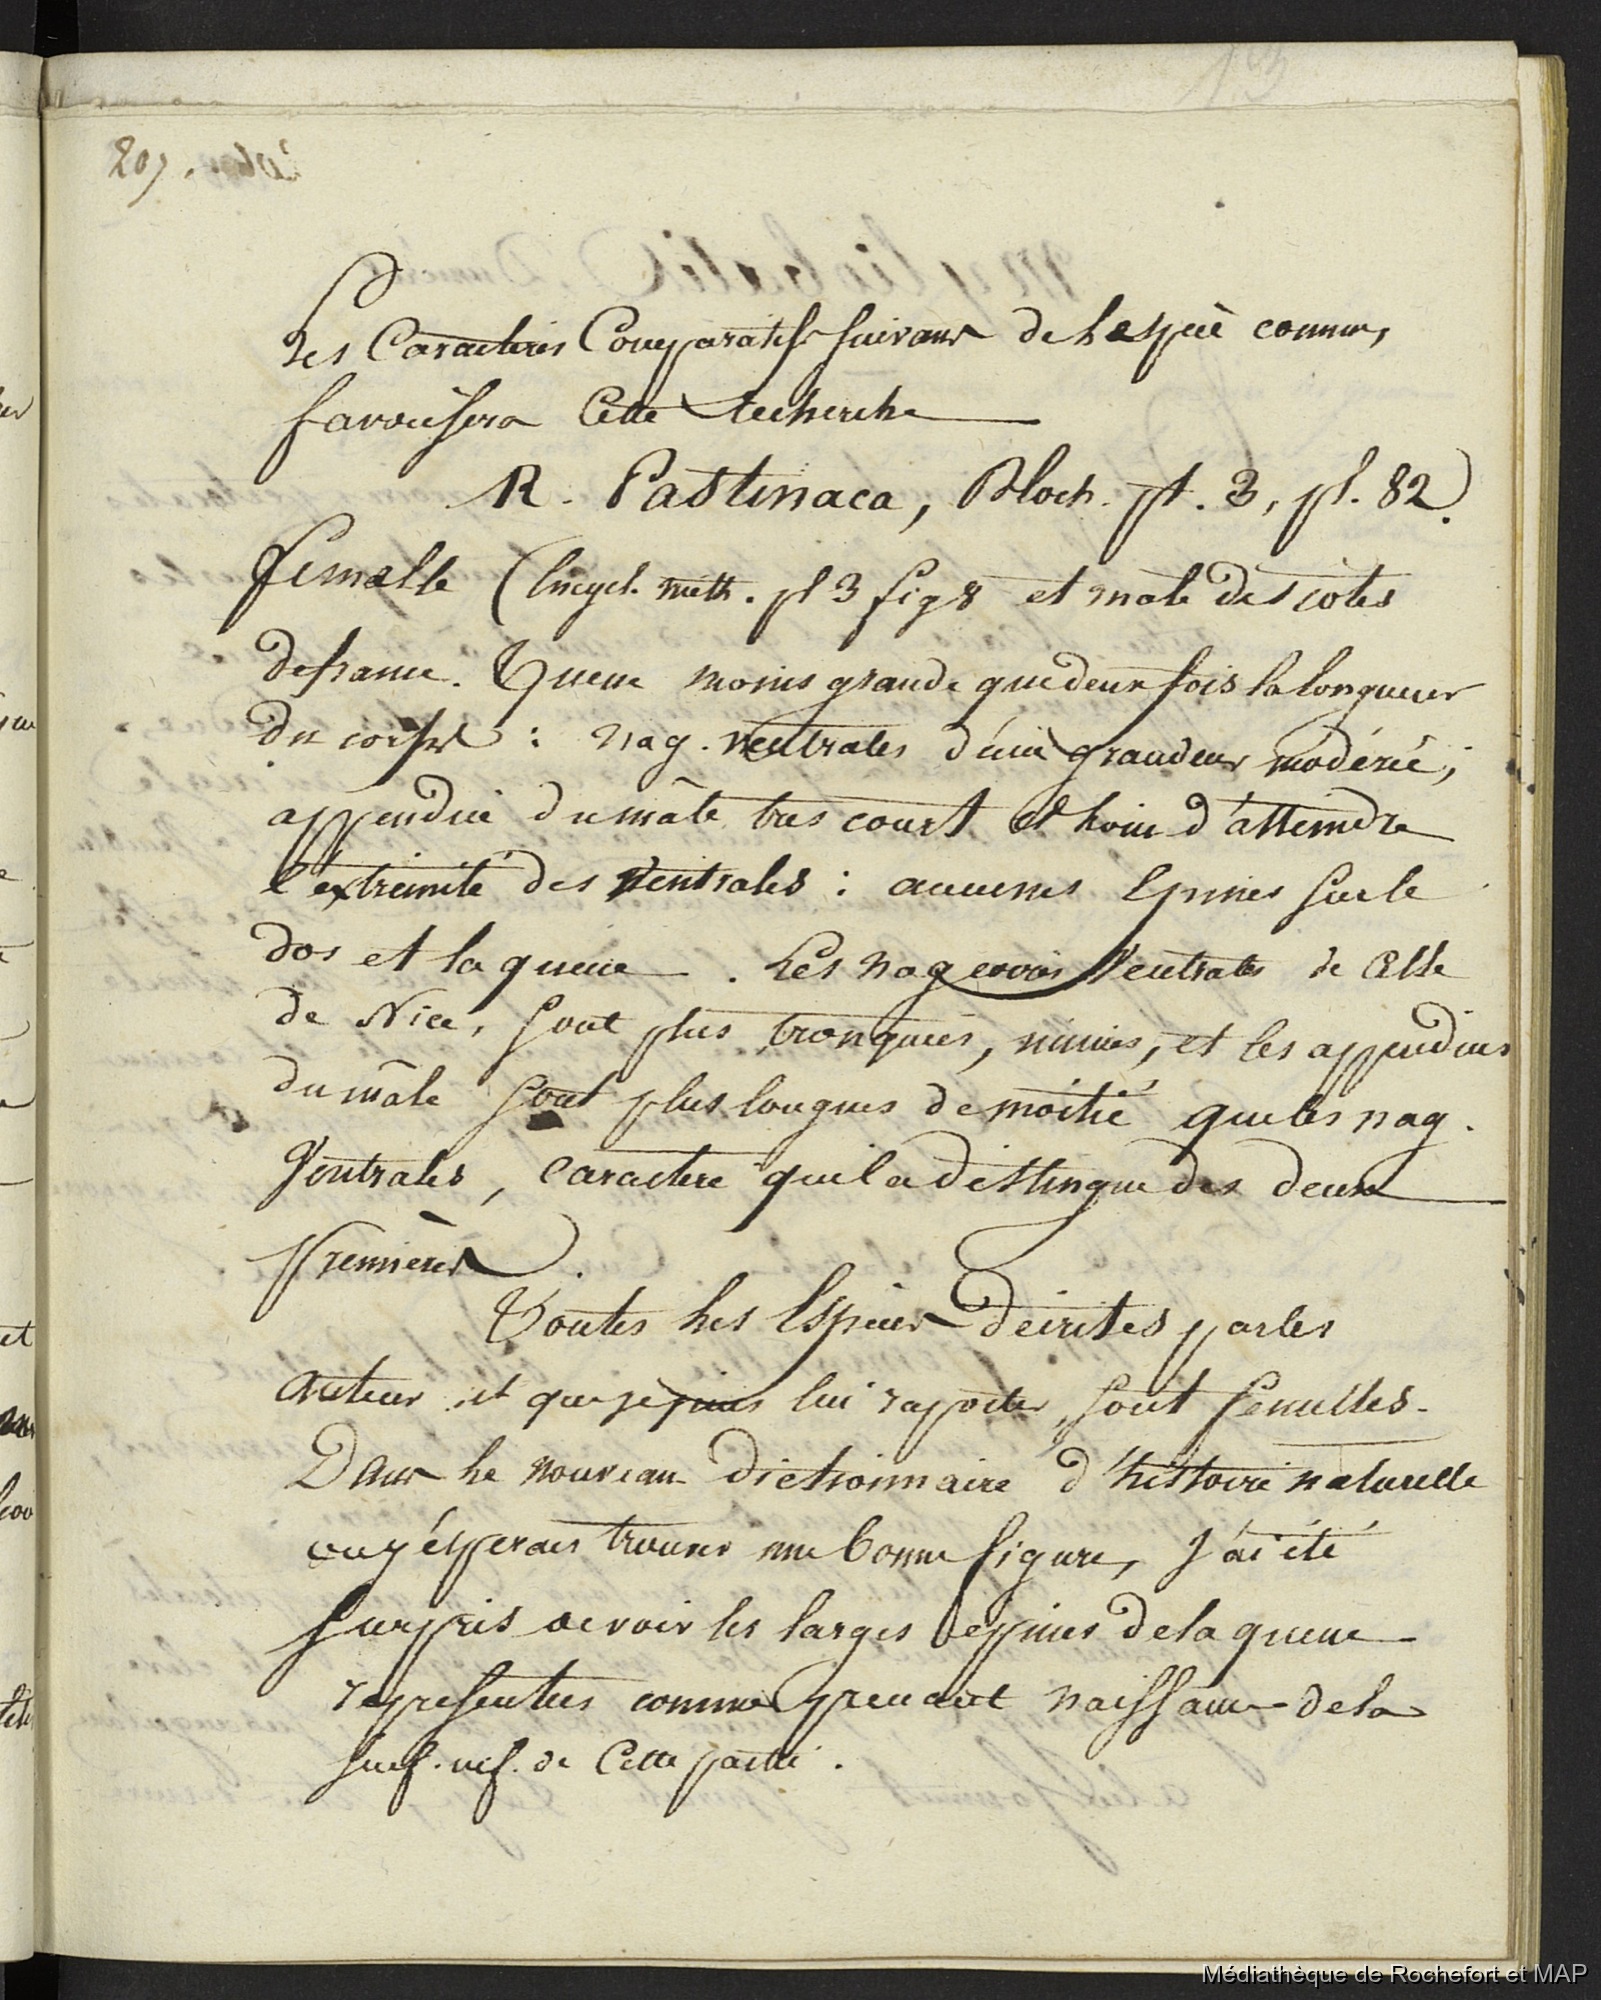 13
207.
Les Caracteres Comparatifs suivans de l'espece connue,
favorisera Cette recherche
R. Pastinaca, Bloch. pt. 3, pl. 82.)
femelle (Encycl. meth. pl 3 fig 8 et male des cotes
de france. Queue moins grande que deux fois la longueur
du corps : nag. ventrales d'une grandeur modérée,
appendice du mâle tres court et loin d'atteindre
l'extremité des Ventrales : aucunes Epines sur le
dos et la queue. Les nageoires Ventrales de Celle
de Nice, sont plus tronquées, minces, et les appendices
du mâle sont plus longues de moitié que les nag.
Ventrales, Caractere qui la distingue des deux
premières.
Toutes les Especes décrites par les
Auteur et que je puis lui raporter, sont femelles.
Dans le nouveau dictionnaire d'histoire naturelle
ou j'ésperais trouver une bonne figure, J'ai été
surpris de voir les larges épines de la queue
représentées comme prenant naissance de la
surf. inf. de Cette partie.
Médiathèque de Rochefort et MAP